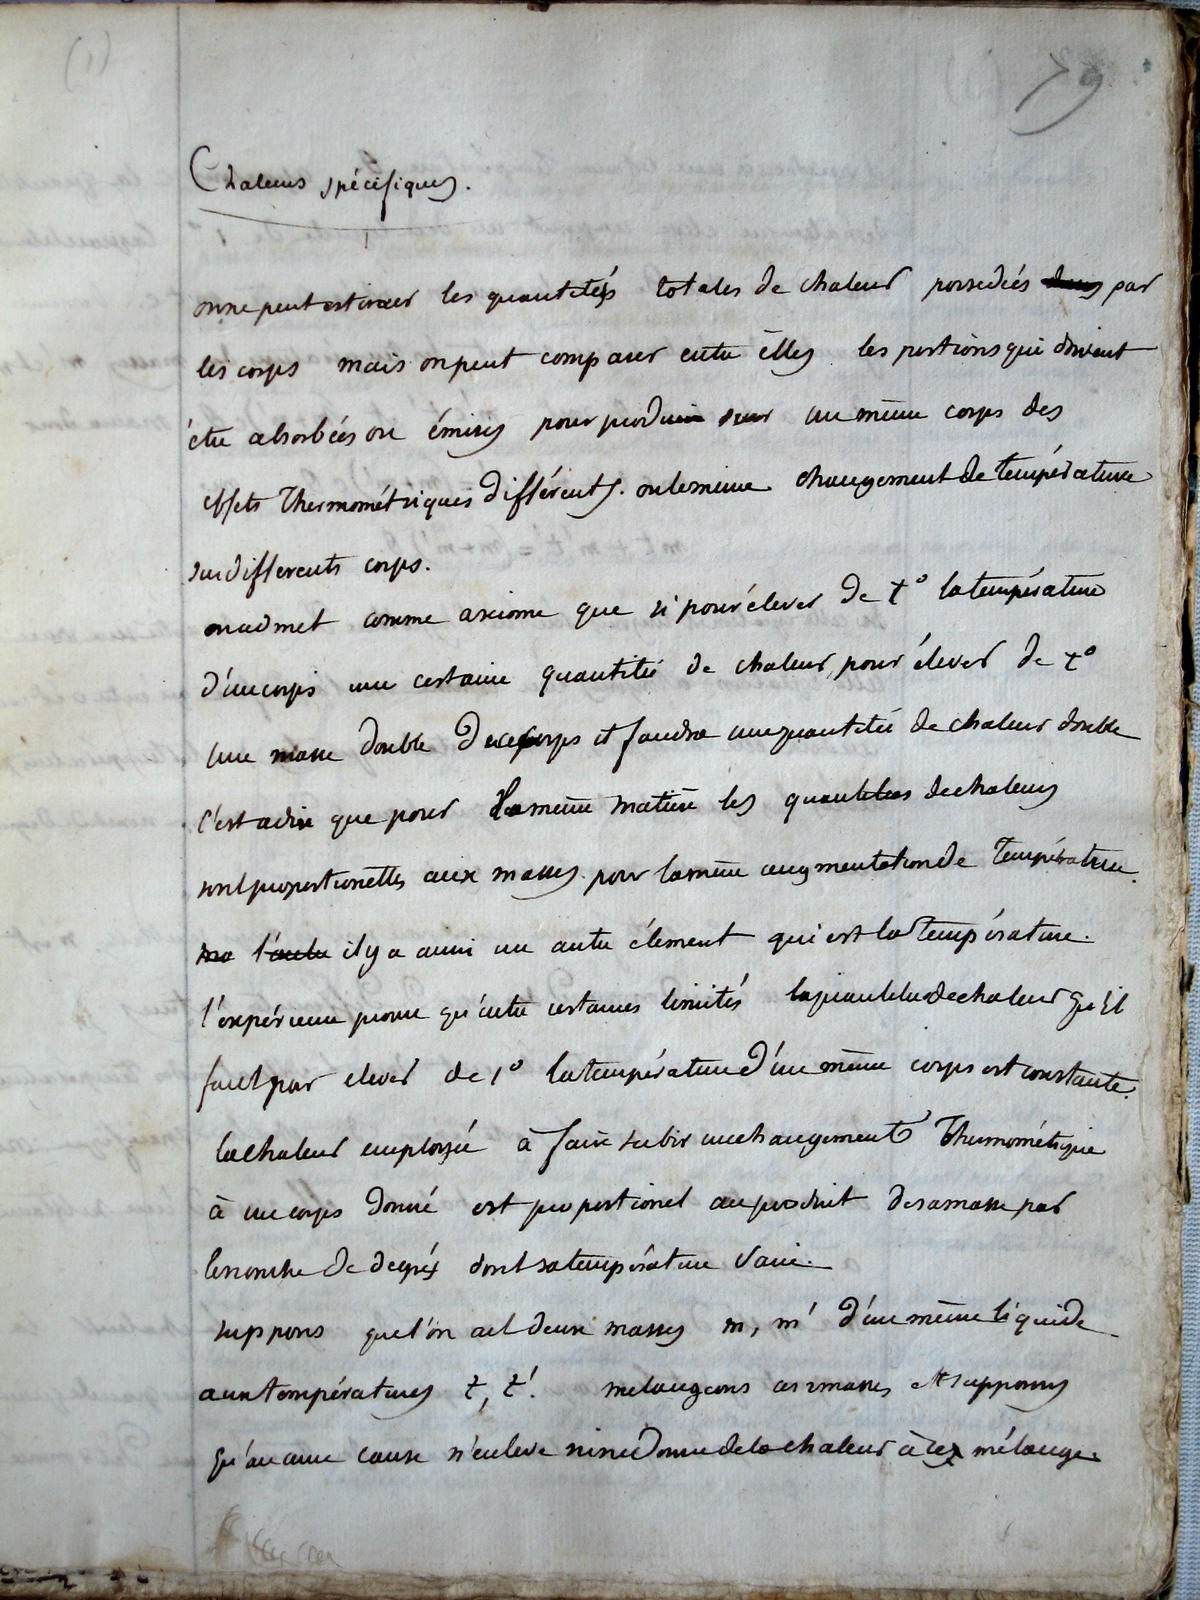 79
Chaleurs spécifiques.
on ne peut estimer les quantités totales de chaleur possedées dans par
les corps mais on peut comparer entre elles les portions qui doivent
être absorbées ou émises pour produire sur un même corps des
effets Thermométriques différents. ou le même changement de température
sur differents corps.
on admet comme axiome que si pour élever de t° la température
d'un corps une certaine quantité de chaleur, pour élever de t°
une masse double de ce corps il faudra une quantité de chaleur double
c'est a dire que pour la même matière les quantités de chaleurs
sont proportionelles aux masses pour la même augmentation de Température.
ma l'autre il y a aussi un autre élement qui est la Température.
l'expérience prouve qu'entre certaines limités la quantité de chaleur qu'il
faut par elever de 1° la température d'un même corps est constante.
la chaleur employée à faire subir un changement Thermométrique
à un corps donné est proportionel au produit de sa masse par
le nombre de degrés dont sa température varie.
supposons que l'on ait deux masses m, m' d'un même liquide
aux températures t, t'. melangeons ces 2 masses et supposons
qu'aucune cause n'enleve ni ne donne de la chaleur à ce mélange.